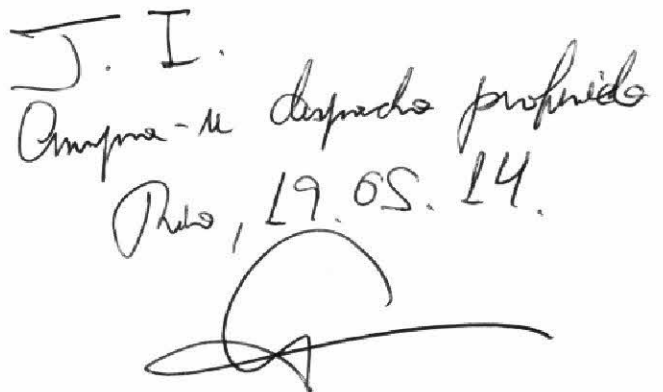 J. I.
Cumpra-se despacho proferido
Rio, 19.05.14.